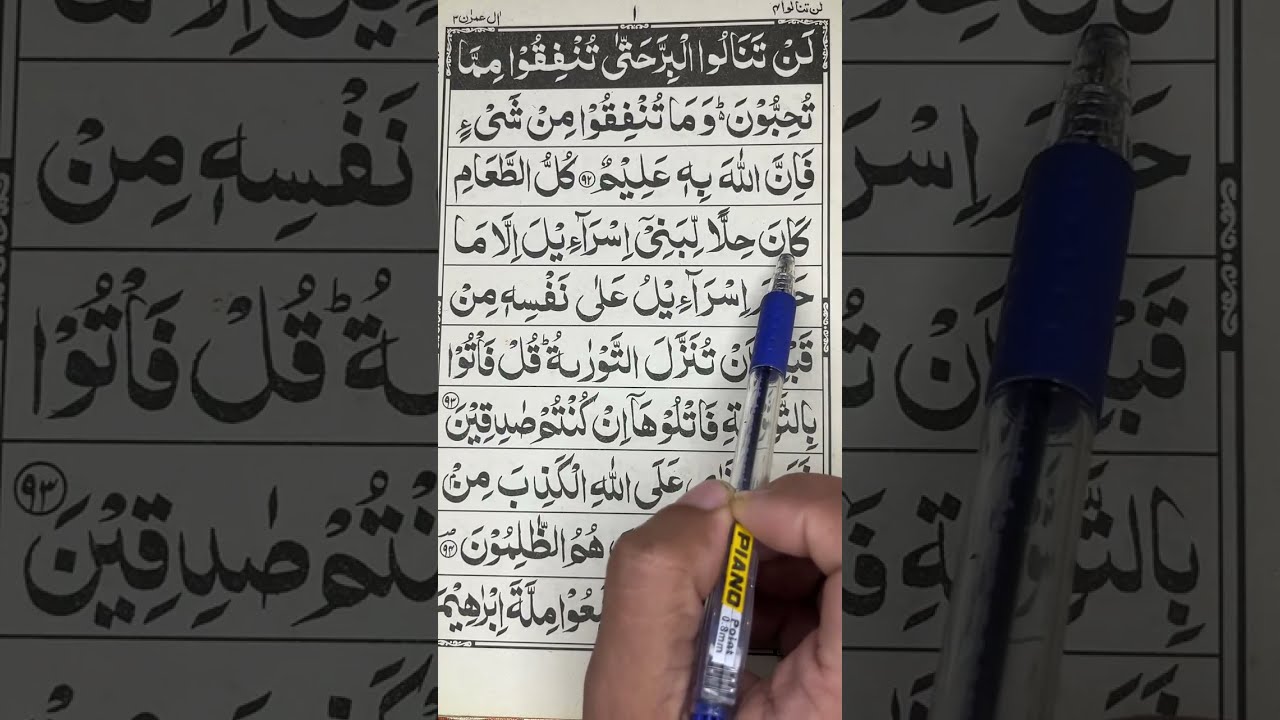 لن تنالوا ۴
۱
اٰل عمرٰن ۳
لَنْ تَنَالُوا الْبِرَّ حَتّٰی تُنْفِقُوْا مِمَّا
تُحِبُّوْنَ ؕ وَ مَا تُنْفِقُوْا مِنْ شَیْءٍ
فَاِنَّ اللّٰهَ بِهٖ عَلِیْمٌ ﴿۹۲﴾ كُلُّ الطَّعَامِ
كَانَ حِلًّا لِّبَنِیْۤ اِسْرَآءِیْلَ اِلَّا مَا
اِسْرَآءِیْلُ عَلٰی نَفْسِهٖ مِنْ
تُنَزَّلَ التَّوْرٰىةُ ؕ قُلْ فَاْتُوْا
فَاتْلُوْهَاۤ اِنْ كُنْتُمْ صٰدِقِیْنَ ﴿۹۳﴾
عَلَی اللّٰهِ الْكَذِبَ مِنْۢ
هُمُ الظّٰلِمُوْنَ ﴿۹۴﴾
مِلَّةَ اِبْرٰهِیْمَ
PIANO
Point
0.8mm